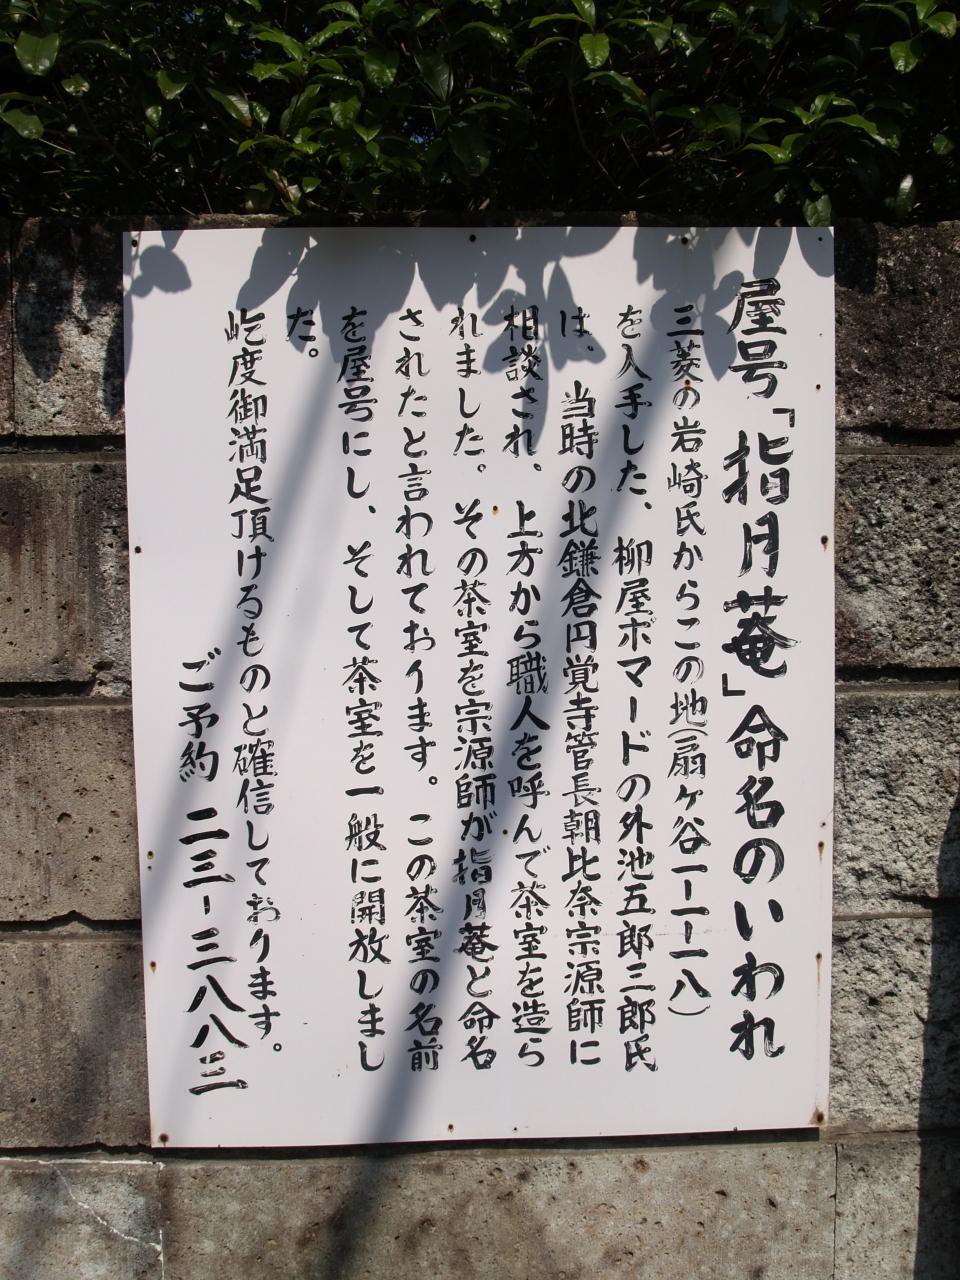 屋号「指月菴」命名のいわれ
三菱の岩崎氏からこの地(扇ヶ谷一ー一ー一八)
を入手した、柳屋ポマードの外池五郎三郎氏
は、当時の北鎌倉円覚寺管長朝比奈宗源師に
相談され、上方から職人を呼んで茶室を造ら
れました。その茶室を宗源師が指月菴と命名
されたと言われております。この茶室の名前
を屋号にし、そして茶室を一般に開放しまし
た。
屹度御満足頂けるものと確信しております。
ご予約 二三-三八八三